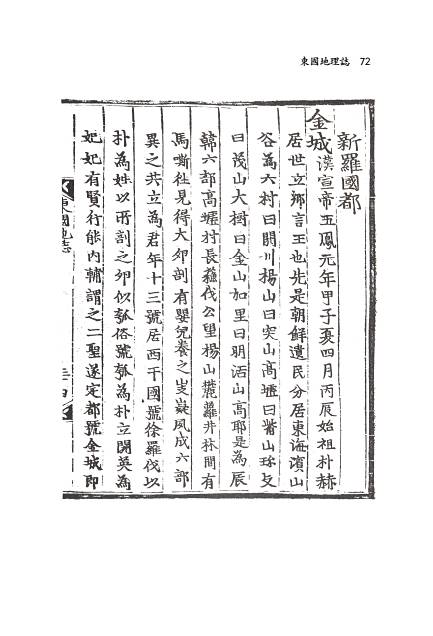 東國地理誌 72
新羅國都
金城漢宣帝五鳳元年甲子夏四月丙辰始祖朴赫
居世立鄕言王也先是朝鮮遺民分居東海濱山
谷爲六村曰閼川楊山曰突山高墟曰觜山珍支
曰茂山大樹曰金山加里曰明活山高耶是爲辰
韓六部高墟村長蘇伐公望楊山麓蘿井林間有
馬嘶徃見得大卵剖有嬰兒養之岐嶷夙成六部
異之共立爲君年十三號居西干國號徐羅伐以
朴爲姓以所剖之卵似瓠俗號瓠爲朴立閼英爲
妃妃有賢行能內輔謂之二聖遂定都號金城即
東國地志